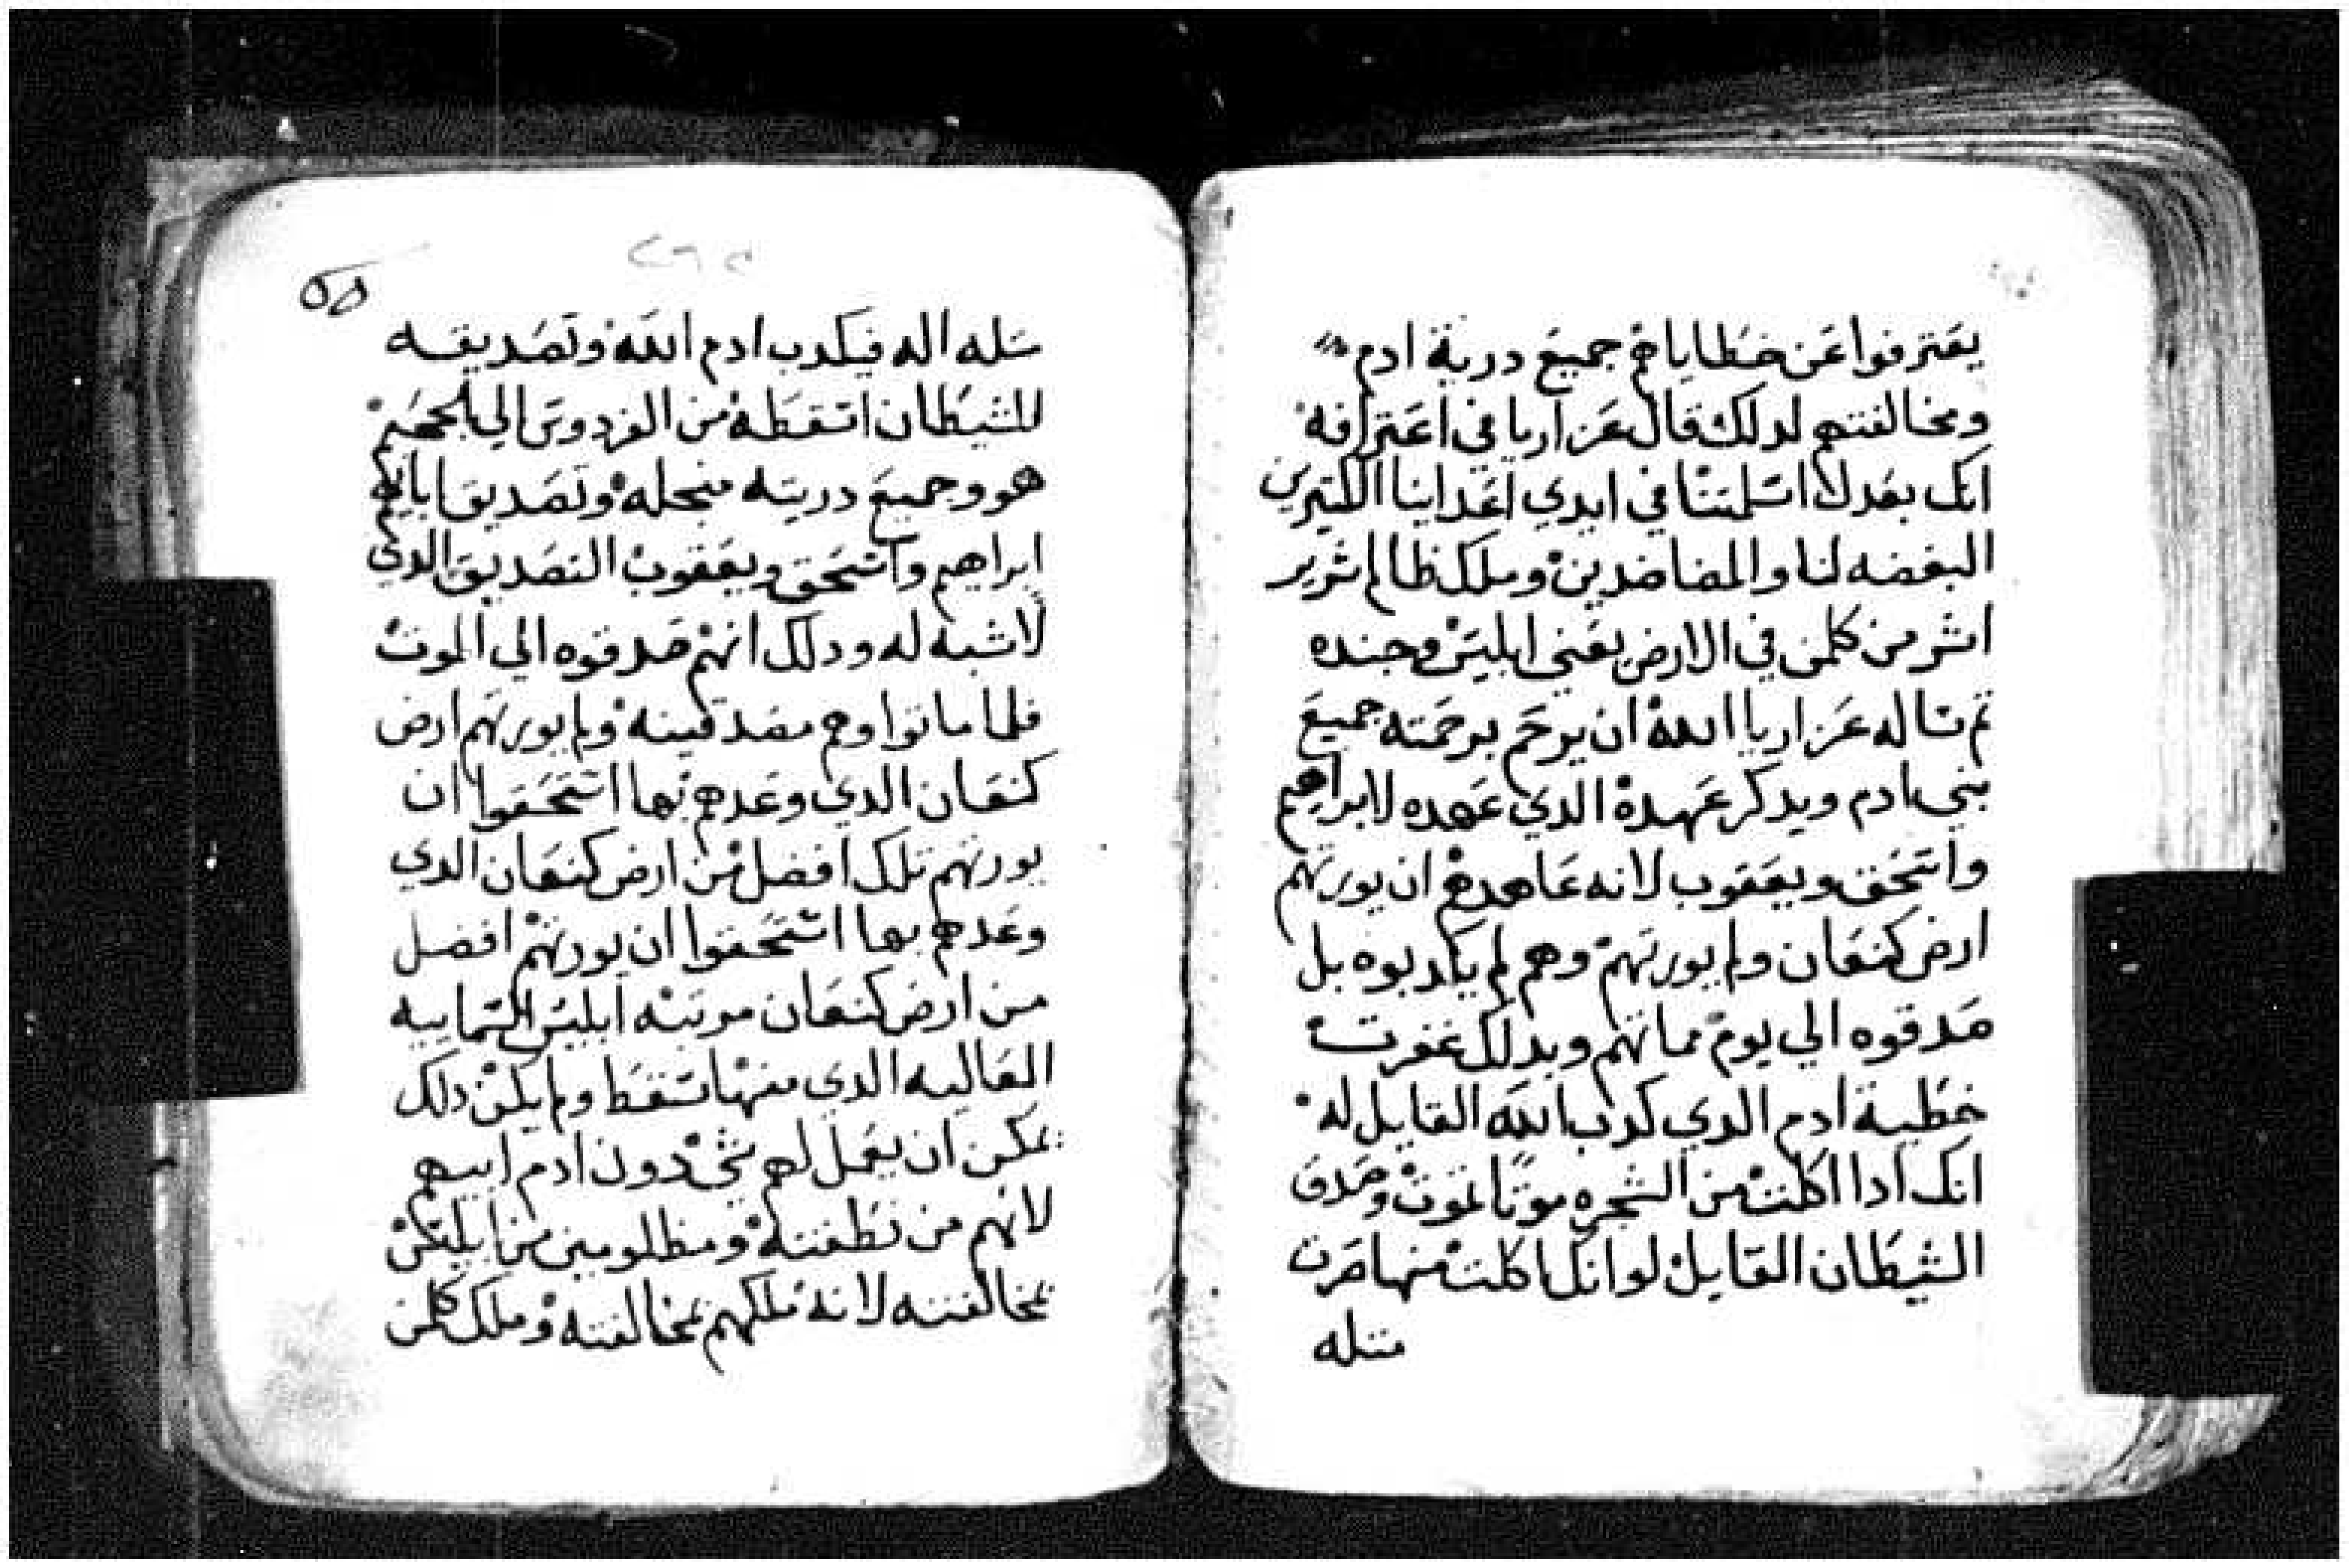 يعترفوا عن خطاياهم جميع درية ادم
ومخالفتهم لدلك قال عزاريا في اعترافه
انك بعدلك اسلمتنا في ايدي اعداينا الكتيرين
البغضه لنا والمضاضدين وملك ظالم شرير
اشر من كلمن في الارض يعني ابليس وجنده
تم ساله عزاريا الله ان يرحم برحمته جميع
بني ادم ويدكر عهده الدي عهده لابراهيم
واسحق ويعقوب لانه عاهدهم ان يورتهم
ارض كنعان ولم يورتهم وهم لم يكدبوه بل
صدقوه الي يوم مماتهم وبدلك غفرت
خطية ادم الدي كدب الله القايل له
انك ادا اكلت من الشجره موتا تموت وصدق
الشيطان القايل لو انك اكلت منها صرت
متله
٥٥
متله اله فيكدب ادم الله وتصديقه
للشيطان اسقطه من الفردوس الي الجحيم
هو وجميع دريته منجله وتصديق ابايهم
ابراهيم واسحق ويعقوب التصديق الدي
لاشبه له ودلك انهم صدقوه الي الموت
فلما ماتوا وهم مصدقينه ولم يورتهم ارض
كنعان الدي وعدهم بها استحقوا ان
يورتهم تلك افضل من ارض كنعان الدي
وعدهم بها استحقوا ان يورتهم افضل
من ارض كنعان مرتبة ابليس السماييه
العاليه الدي منها سقط ولم يكن دلك
يمكن ان يعمل لهم شي دون ادم ابيهم
لانهم من نطفته ومظلومين من ابليس
بمخالفته لانه ملكهم بمخالفته وملك كلمن